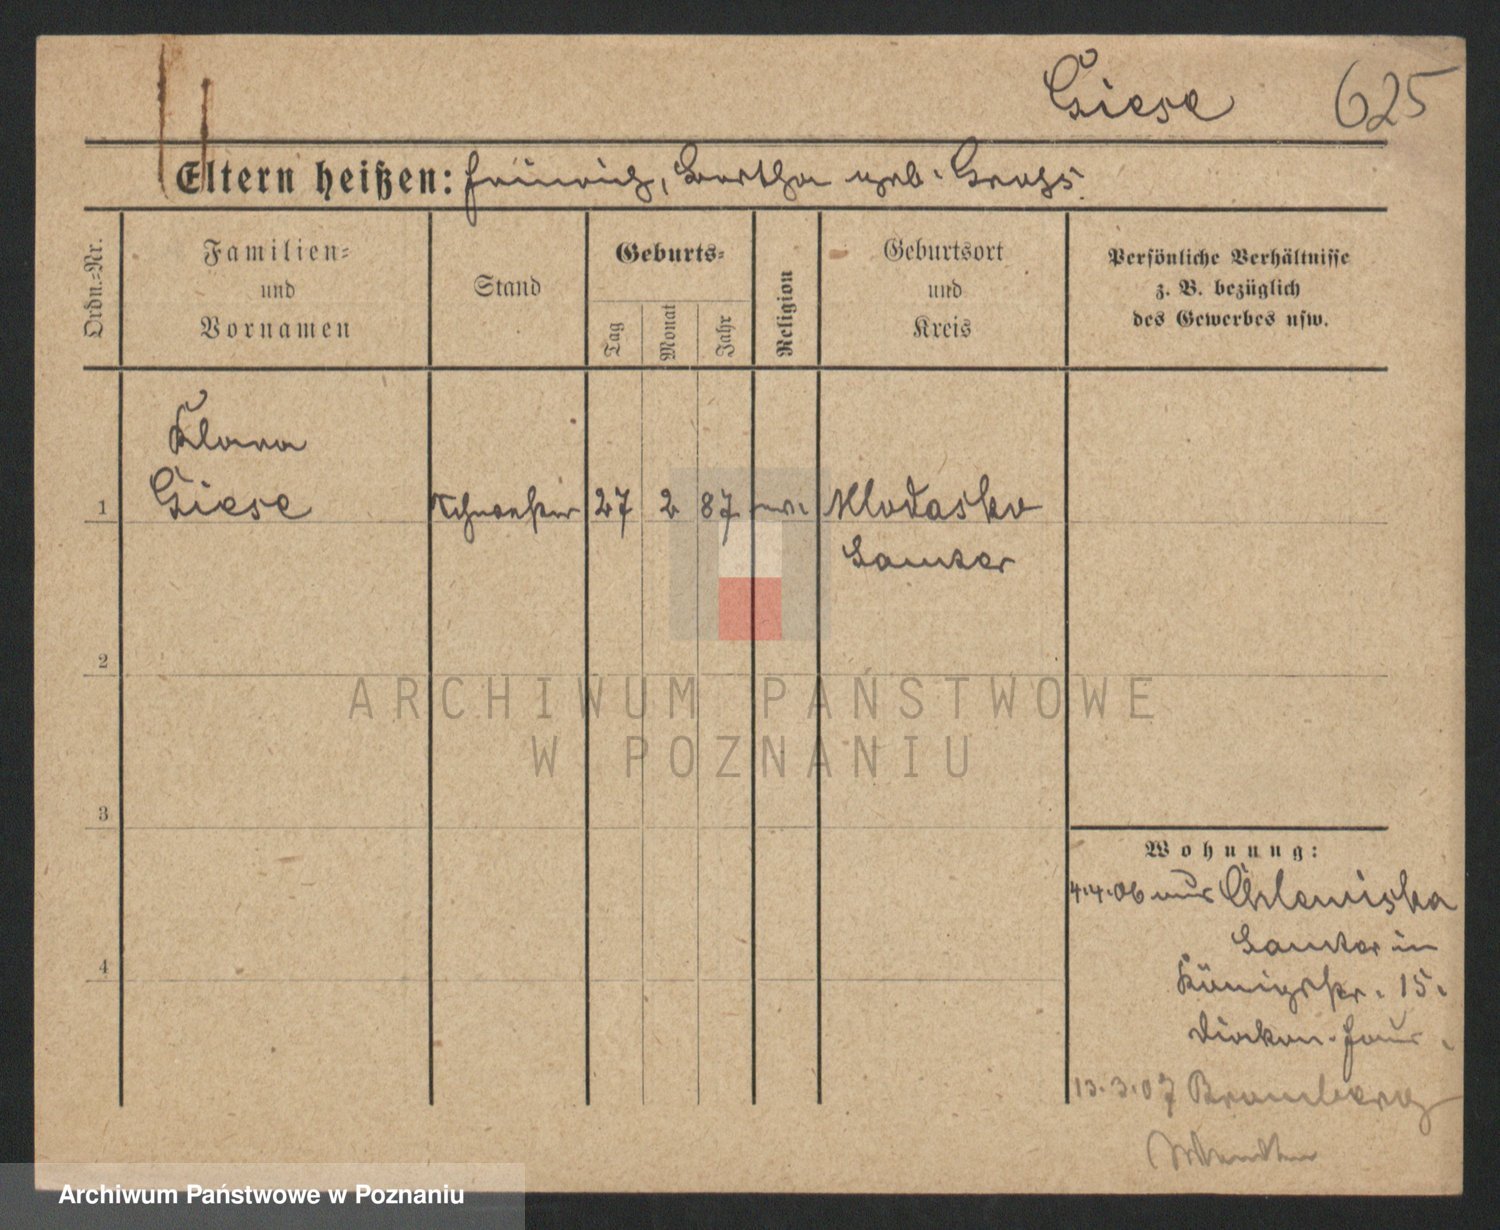 Giese 625
Eltern heißen: Heinrich, Bertha geb. Gross.
Ordn.=Nr.
Familien=
und
Vornamen
Stand
Geburts=
Tag
Monat
Jahr
Religion
Geburtsort
und
Kreis
Persönliche Verhältnisse
z. B. bezüglich
des Gewerbes usw.
Klara
1 Giese Schwester 27 2 87 ev. Mlodasko
Samter
2
ARCHIWUM PAŃSTWOWE
W POZNANIU
3
Wohnung:
4.4.06 aus
Samter in
4
Königstr. 15.
Diakon. Haus.
13.3.07 Bromberg
Archiwum Państwowe w Poznaniu